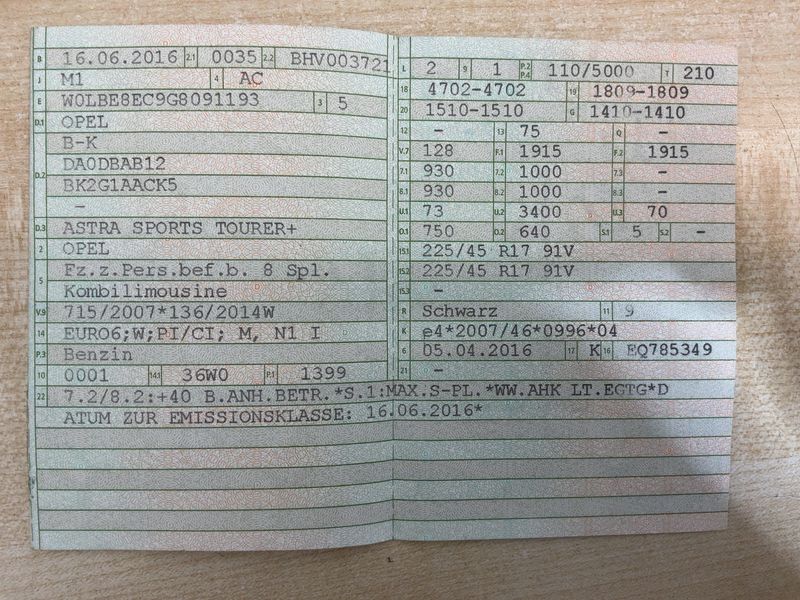 B 16.06.2016 2.1 0035 2.2 BHV003721
J M1 4 AC
E W0LBE8EC9G8091193 3 5
D.1 OPEL
B-K
D.2 DA0DBAB12
BK2G1AACK5
-
D.3 ASTRA SPORTS TOURER+
2 OPEL
5 Fz.z.Pers.bef.b. 8 Spl.
Kombilimousine
V.9 715/2007*136/2014W
14 EURO6;W;PI/CI; M, N1 I
P.3 Benzin
10 0001 14.1 36W0 P.1 1399
L 2 9 1 P.2 P.4 110/5000 T 210
18 4702-4702 19 1809-1809
20 1510-1510 G 1410-1410
12 - 13 75 Q -
V.7 128 F.1 1915 F.2 1915
7.1 930 7.2 1000 7.3 -
8.1 930 8.2 1000 8.3 -
U.1 73 U.2 3400 U.3 70
O.1 750 O.2 640 S.1 5 S.2 -
15.1 225/45 R17 91V
15.2 225/45 R17 91V
15.3 -
R Schwarz 11 9
K e4*2007/46*0996*04
6 05.04.2016 17 K 16 EQ785349
21 -
22 7.2/8.2:+40 B.ANH.BETR.*S.1:MAX.S-PL.*WW.AHK LT.EGTG*D
ATUM ZUR EMISSIONSKLASSE: 16.06.2016*